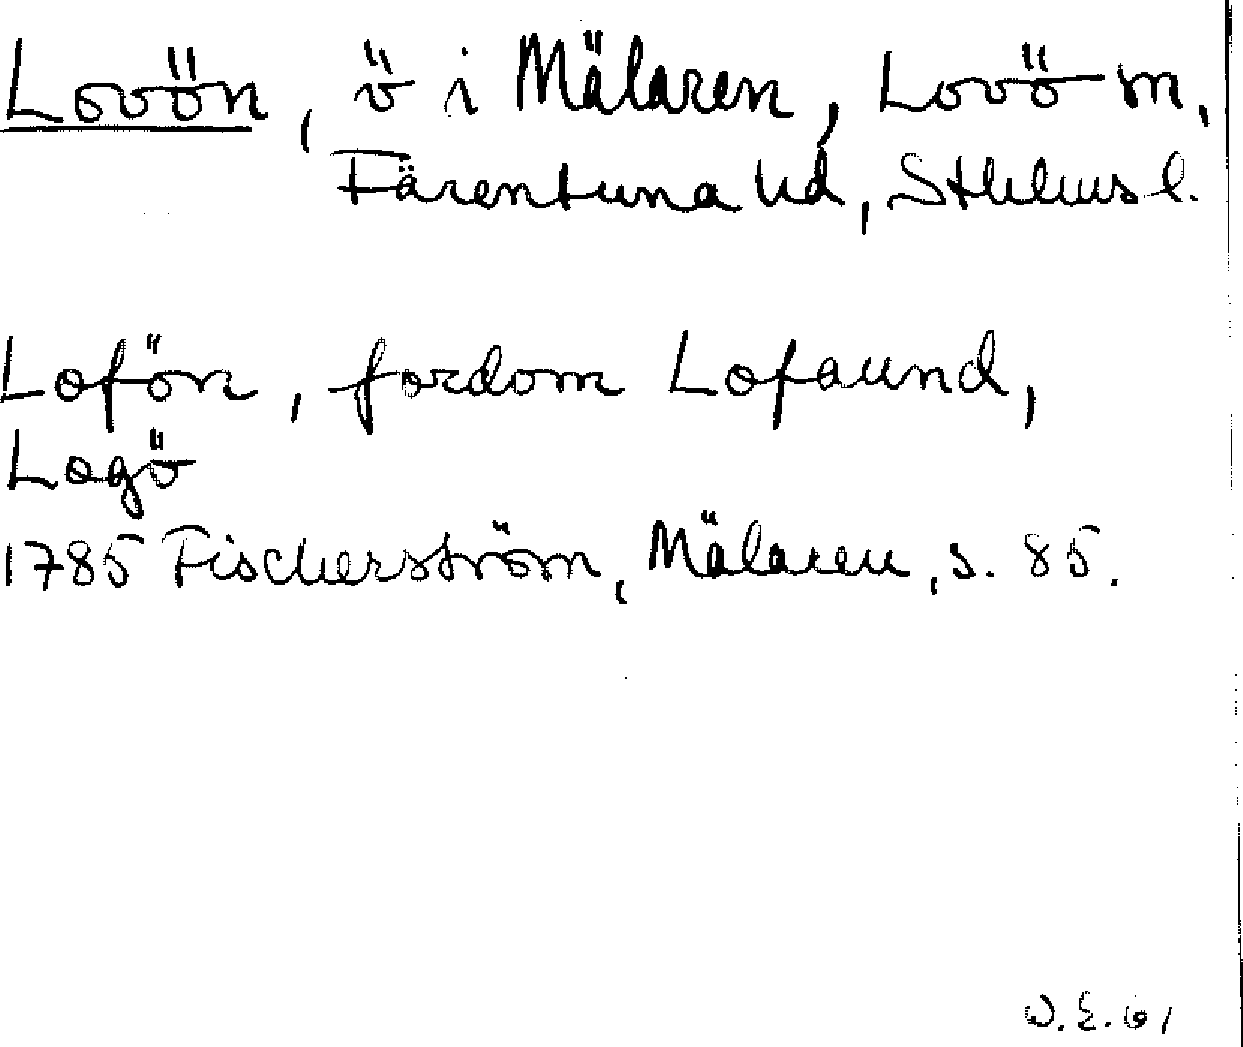 Lovön, ö i Mälaren, Lovö m,
Färentuna hd, Sthlms l.
Lofön, fordom Lofaund,
Logö
1785 Fischerström, Mälaren, s. 85.
W. E. 61